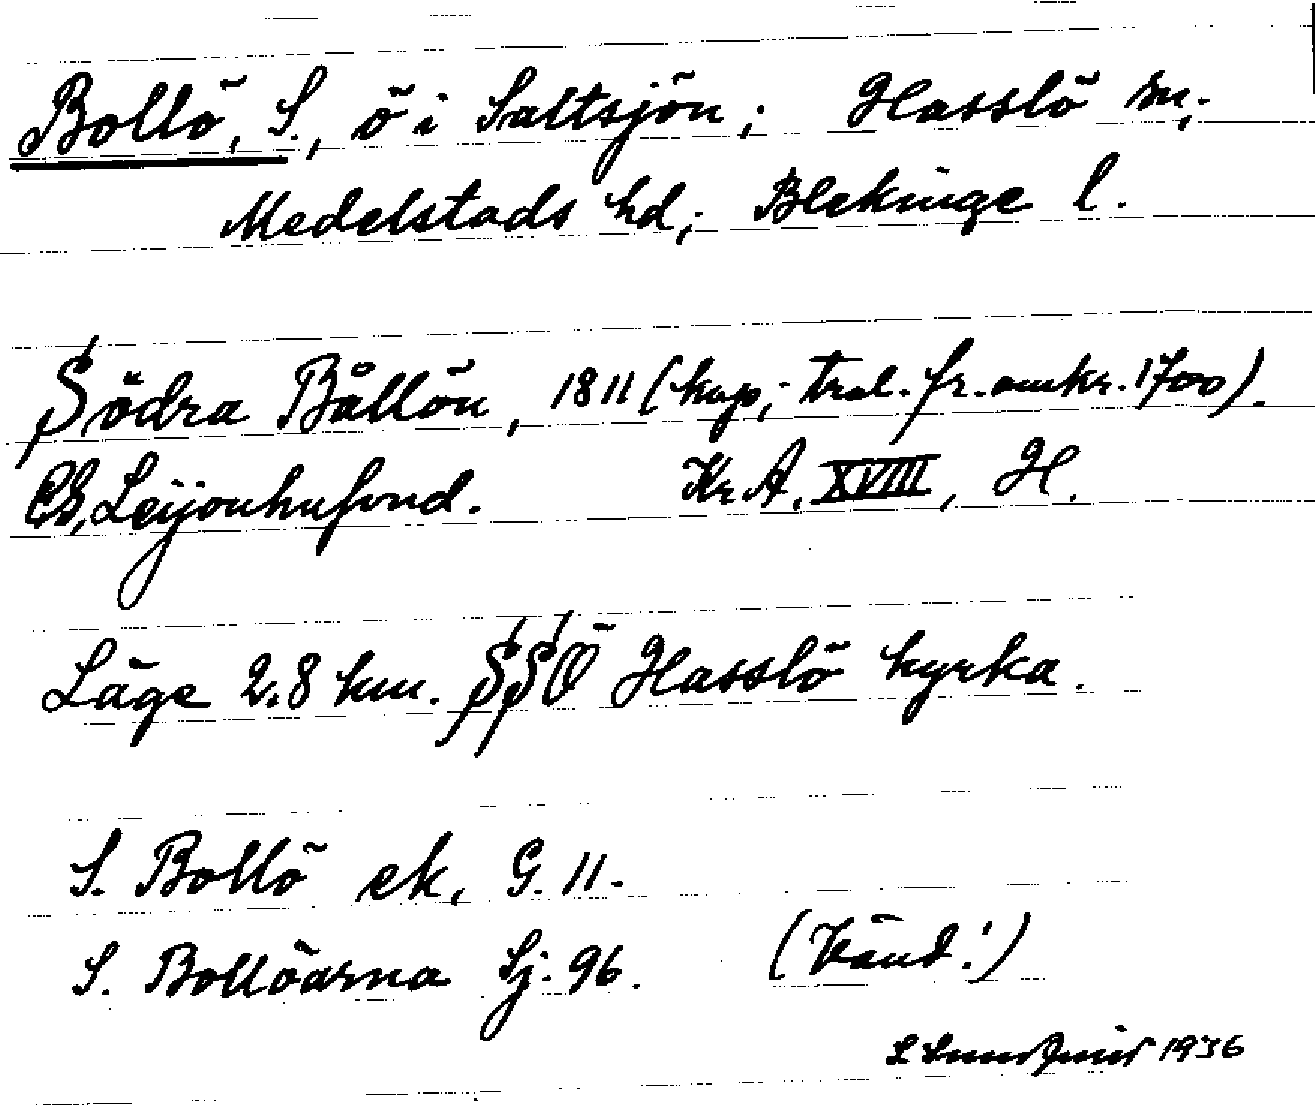 Bollö, S., ö i Saltsjön; Hasslö sn,
Medelstads hd, Blekinge l.
Södra Bållön, 1811 (kop; tral. fr. omkr. 1700).
Leijonhufvud. Kr. A. XVIII, H.
Läge 2.8 km. SSÖ Hasslö kyrka.
S. Bollö ek, G. 11.
S. Bollöarna Sj. 96. (Vänd!)
1936